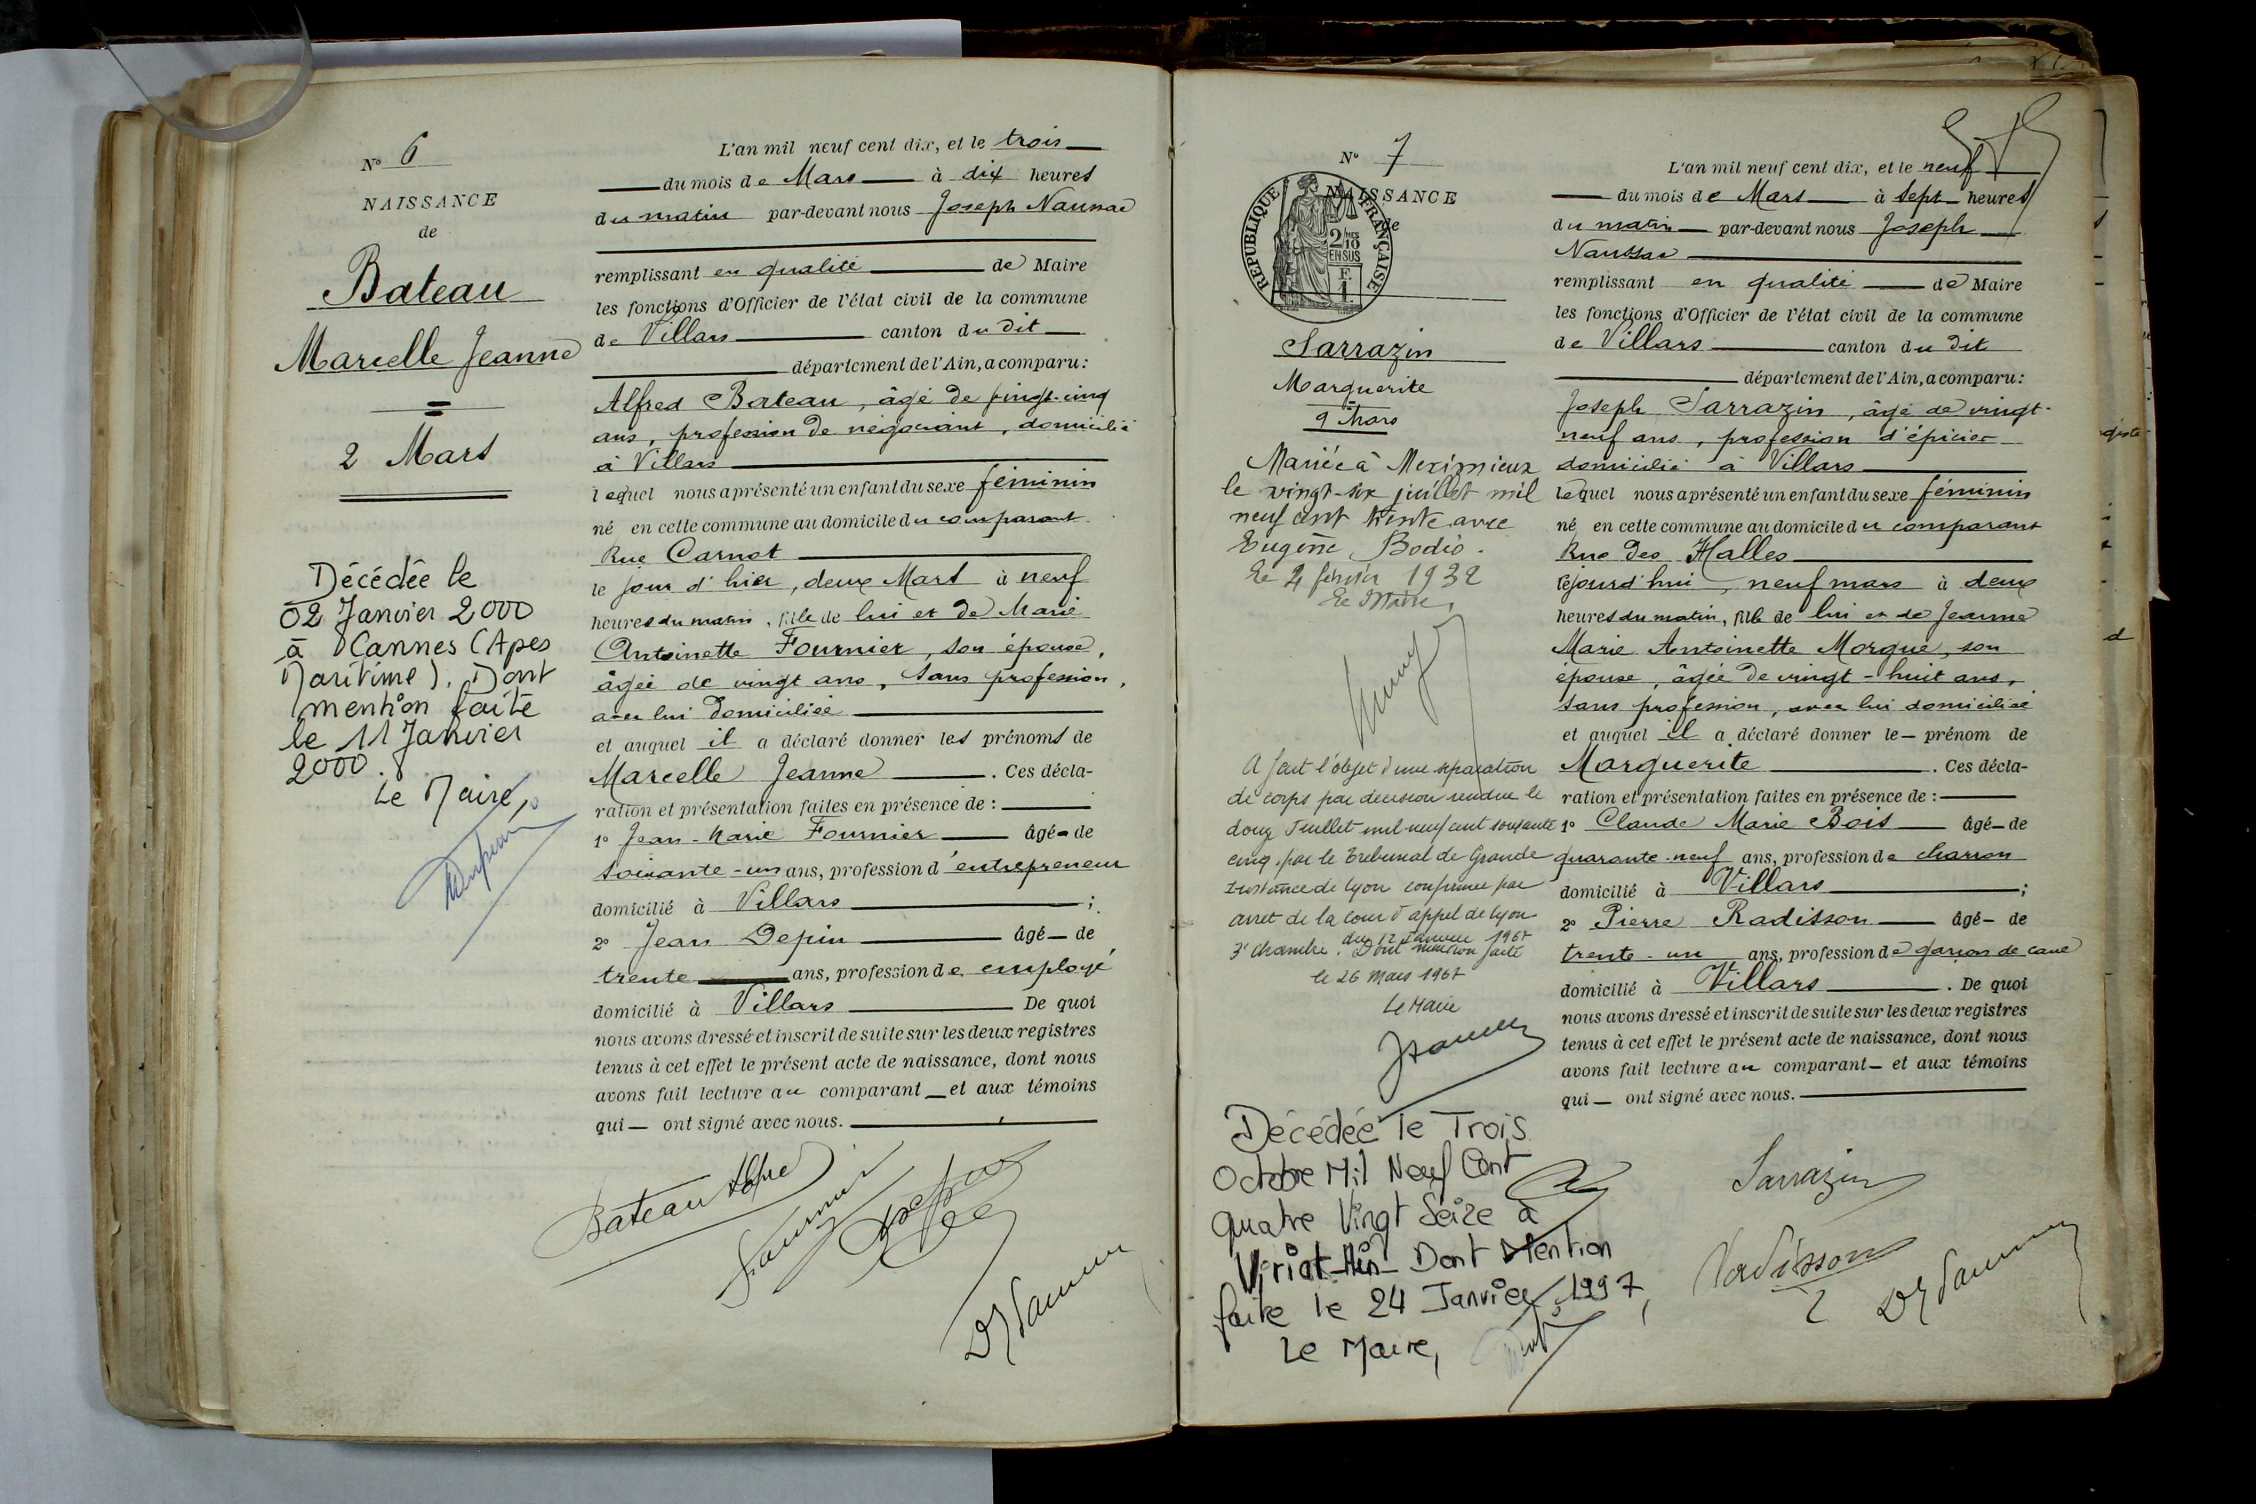 N° 6
NAISSANCE
de
Bateau
Marcelle Jeanne
2 Mars
Décédée le
02 Janvier 2000
à Cannes (Apes
Maritime). Dont
mention faite
le 11 Janvier
2000.
Le Maire,
L'an mil neuf cent dix, et le trois
du mois de Mars à dix heures
du matin par-devant nous Joseph Naussac
remplissant en qualité de Maire
les fonctions d'Officier de l'état civil de la commune
de Villars canton du dit
département de l'Ain, a comparu :
Alfred Bateau, âgé de vingt-cinq
ans, profession de négociant, domicilié
à Villars
lequel nous a présenté un enfant du sexe féminin
né en cette commune au domicile du comparant
Rue Carnot
le jour d'hier, deux Mars à neuf
heures du matin, fille de lui et de Marie
Antoinette Fournier, son épouse,
âgée de vingt ans, sans profession,
avec lui domiciliée
et auquel il a déclaré donner les prénoms de
Marcelle Jeanne . Ces décla-
ration et présentation faites en présence de :
1° Jean-Marie Fournier âgé de
soixante-un ans, profession d'entrepreneur
domicilié à Villars ;
2° Jean Depin âgé de
trente ans, profession de employé
domicilié à Villars De quoi
nous avons dressé et inscrit de suite sur les deux registres
tenus à cet effet le présent acte de naissance, dont nous
avons fait lecture au comparant et aux témoins
qui ont signé avec nous.
Bateau Alfred
Fournier
N° 7
NAISSANCE
de
REPUBLIQUE FRANÇAISE
2/10
EN SUS
F.
1.
Sarrazin
Marguerite
9 Mars
Mariée à Meximieux
le vingt-six juillet mil
neuf cent trente avec
Eugène Bodio.
Le 4 février 1932
Le Maire,
A fait l'objet d'une séparation
de corps par décision rendue le
douze Juillet mil neuf cent soixante
cinq, par le Tribunal de Grande
Instance de Lyon confirmée par
arret de la Cour d'appel de Lyon
3e Chambre. du 12 Janvier 1967
Dont mention faite
le 26 Mars 1967
Le Maire
Décédée le Trois
Octobre Mil Neuf Cent
Quatre Vingt Seize à
Viriat-Ain- Dont Mention
faite le 24 Janvier 1997,
Le Maire,
L'an mil neuf cent dix, et le neuf
du mois de Mars à sept heures
du matin par-devant nous Joseph
Naussac
remplissant en qualité de Maire
les fonctions d'Officier de l'état civil de la commune
de Villars canton du dit
département de l'Ain, a comparu :
Joseph Sarrazin, âgé de vingt-
neuf ans, profession d'épicier
domicilié à Villars
lequel nous a présenté un enfant du sexe féminin
né en cette commune au domicile du comparant
Rue des Halles
cejourd'hui, neuf mars à deux
heures du matin, fille de lui et de Jeanne
Marie Antoinette Morgue, son
épouse, âgée de vingt-huit ans,
sans profession, avec lui domiciliée
et auquel il a déclaré donner le prénom de
Marguerite . Ces décla-
ration et présentation faites en présence de :
1° Claude Marie Bois âgé de
quarante-neuf ans, profession de charron
domicilié à Villars ;
2° Pierre Radisson âgé de
trente-un ans, profession de garçon de cave
domicilié à Villars . De quoi
nous avons dressé et inscrit de suite sur les deux registres
tenus à cet effet le présent acte de naissance, dont nous
avons fait lecture au comparant et aux témoins
qui ont signé avec nous.
Sarrazin
Radisson